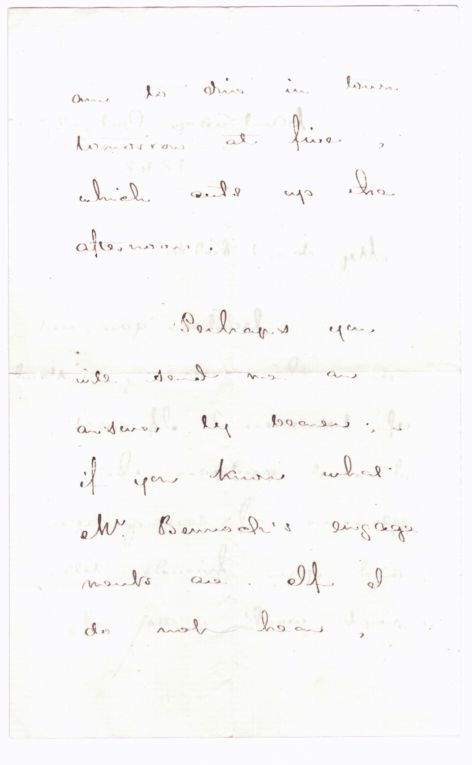 am to dine in town
tomorrow at five,
which cuts up the
afternoon.
Perhaps you
will send me an
answer by bearer;
if you know what
Mr. Bennoch's engage
ments are. If I
do not hear,